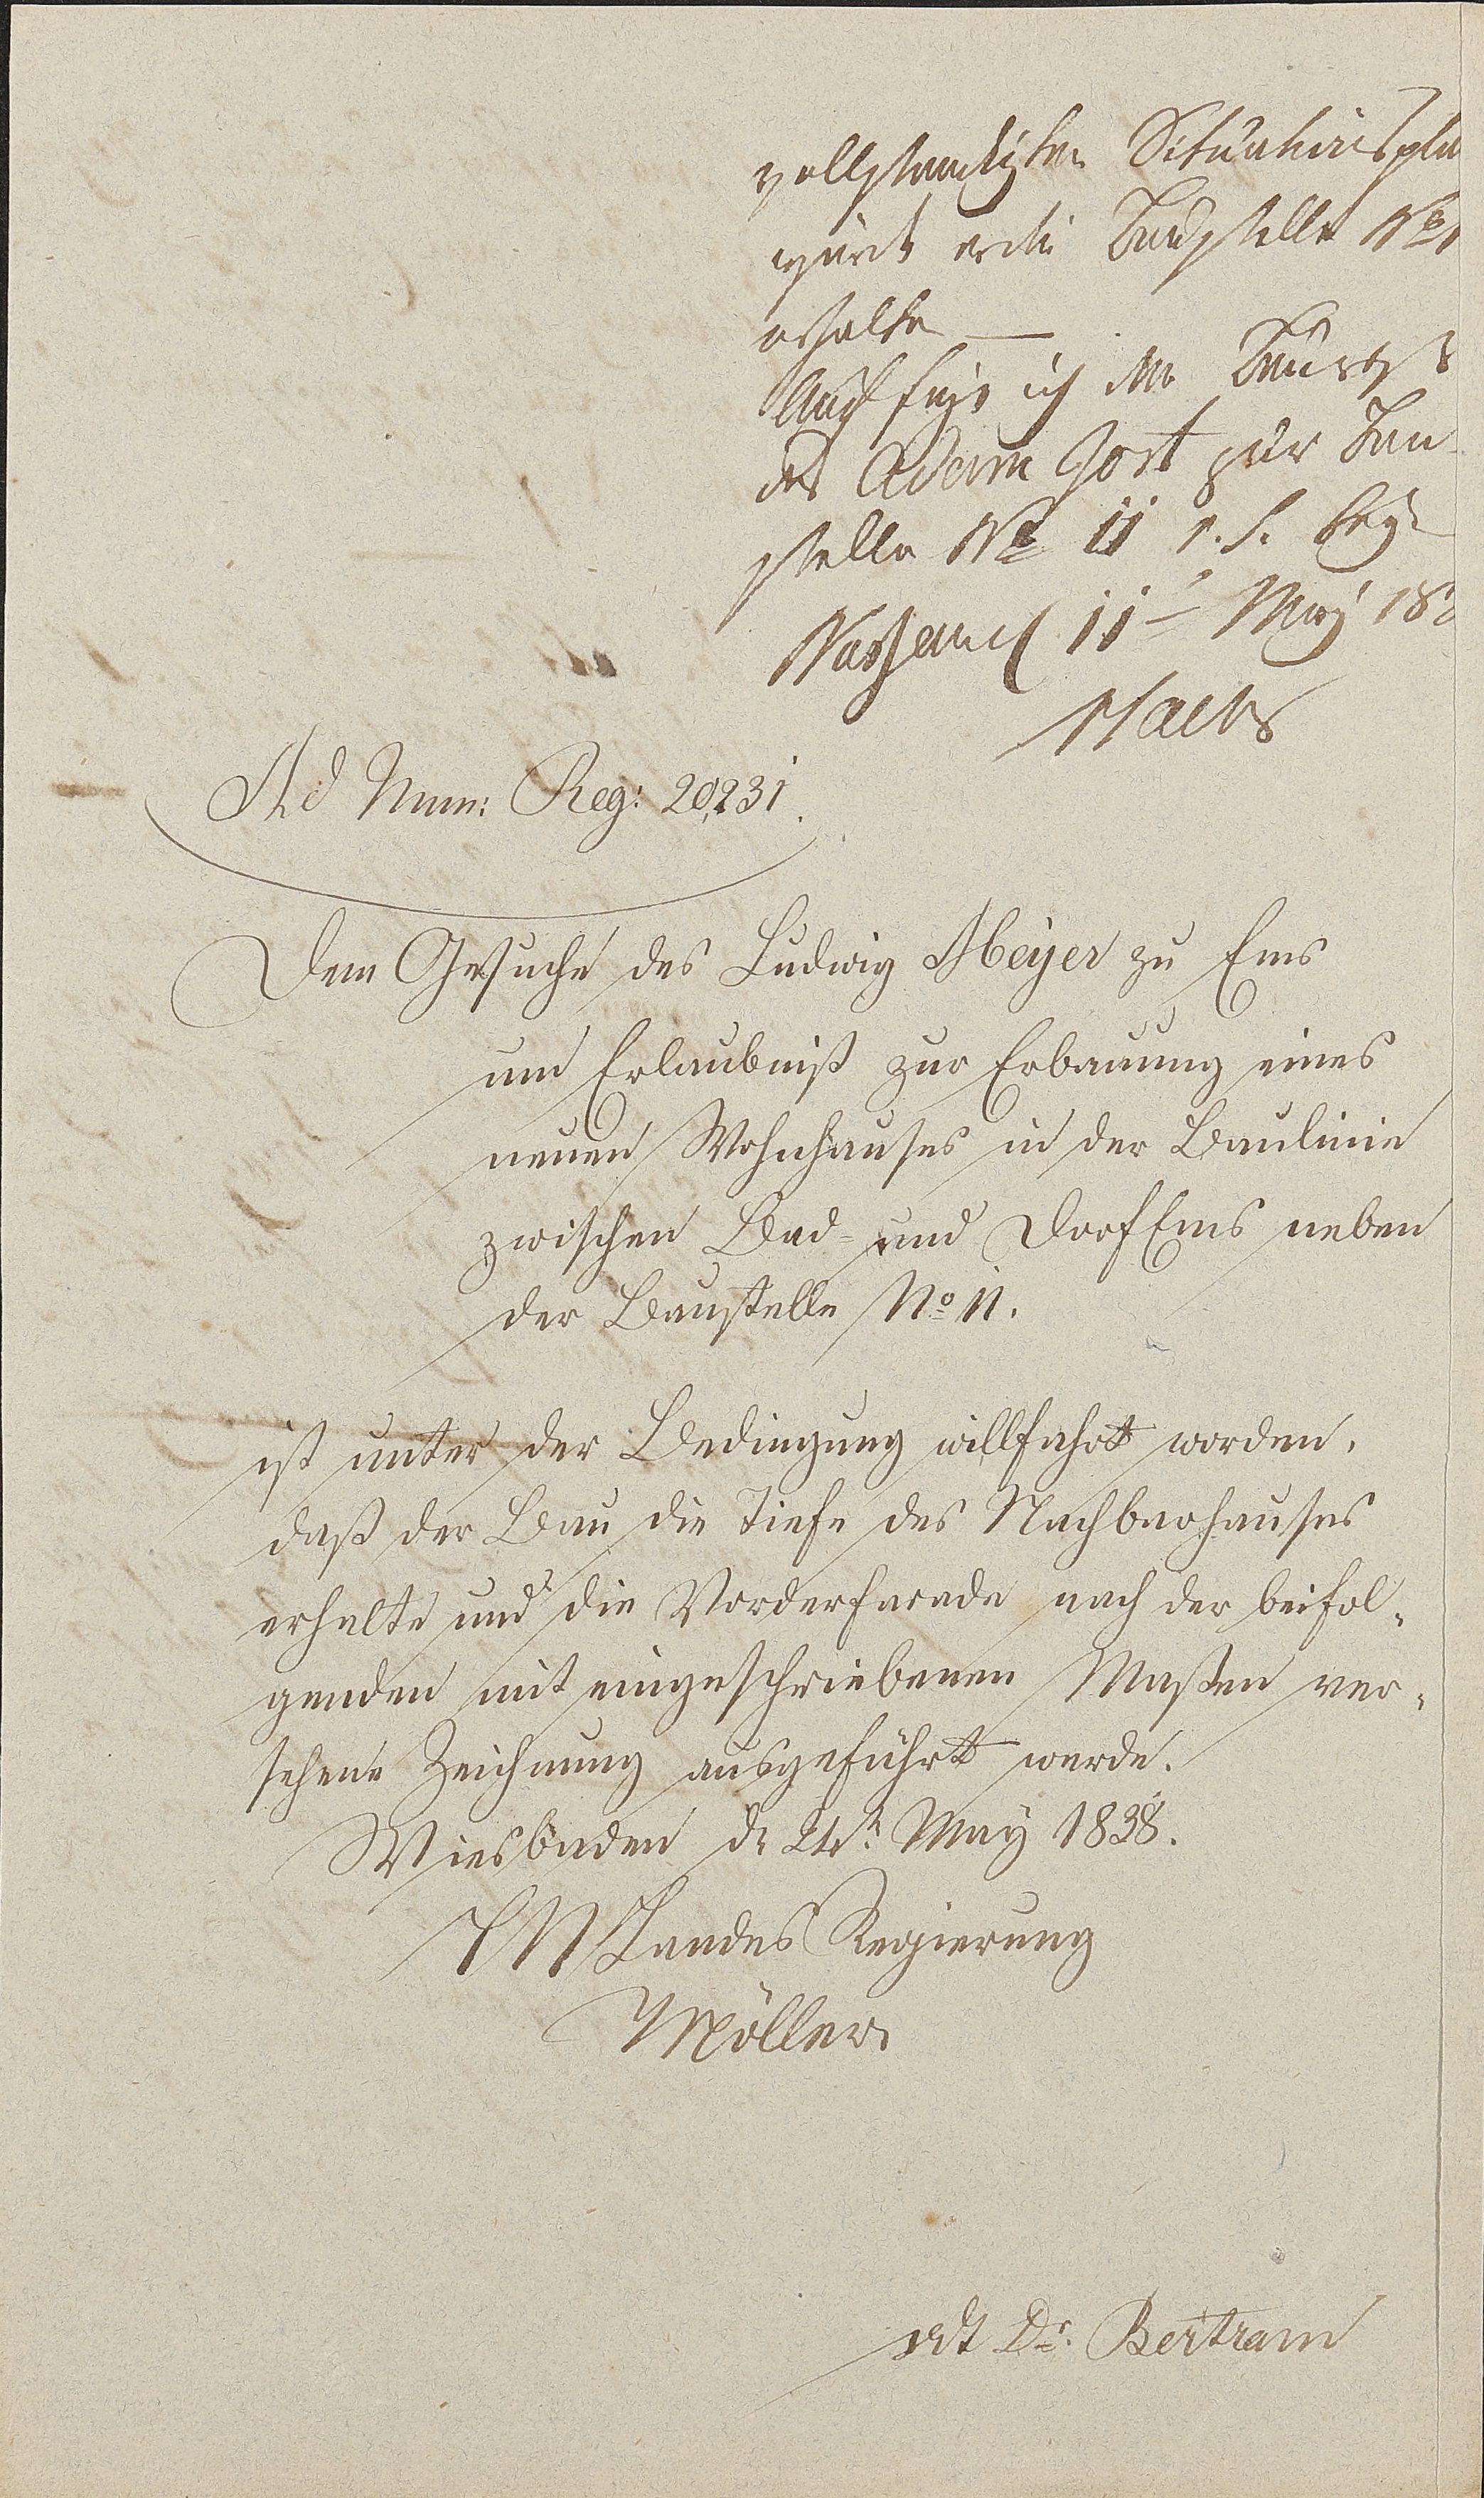 vollstandigen Situationspla
erhalte —
Auch füge ich den
des Adam Jost zur Bau
stelle No 11
Nassau 11t May 18
Haebs
Ad Num: Reg: 20,231.
Dem Gesuche des Ludwig Meyer zu Ems
um Erlaubniß zur Erbauung eines
neuen Wohnhauses in der Baulinie
zwischen Bad- und Dorf Ems neben
der Baustelle No 11.
ist unter der Bedingung willfahrt worden,
daß der Bau die Tiefe des Nachbarhauses
erhalte und die Vorderfacade nach der beifol-
genden mit eingeschriebenen Maßen ver-
sehene Zeichnung ausgeführt werde.
Wiesbaden d. 24t. May 1838.
HN Landes Regierung
Möller
vdt Dr. Bertram